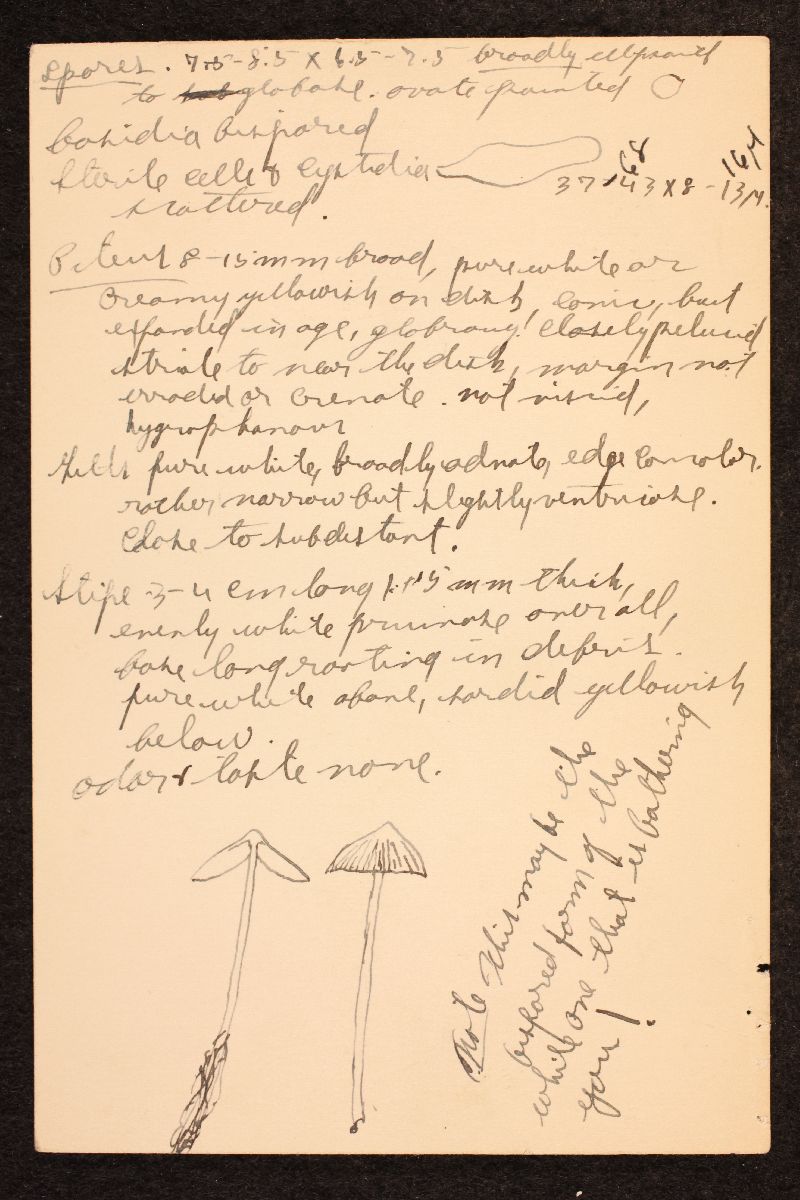 Spores. 7.5-8.5 x 6.5-7.5 broadly ellipsoid
to sub globose. ovate pointed
basidia bispored
Sterile cells & cystidia
scattered.
37-43 x 8-13µ.
68
16µ
Pileus 8-15 mm broad, pure white or
creamy yellowish on disk, conic, but
expanded in age, glabrous, closely pelucid
striate to near the disk, margin not
eroded or crenate. not viscid,
hygrophanous
Gills pure white, broadly adnate, edge concolor.
rather narrow but slightly ventricose.
Close to subdistant.
Stipe 3-4 cm long 1-1.5 mm thick,
evenly white pruinose over all,
base long rooting in debris.
pure white above, sordid yellowish
below.
odor & taste none.
Note This may be the
bispored form of the
white one that is bothering
you!